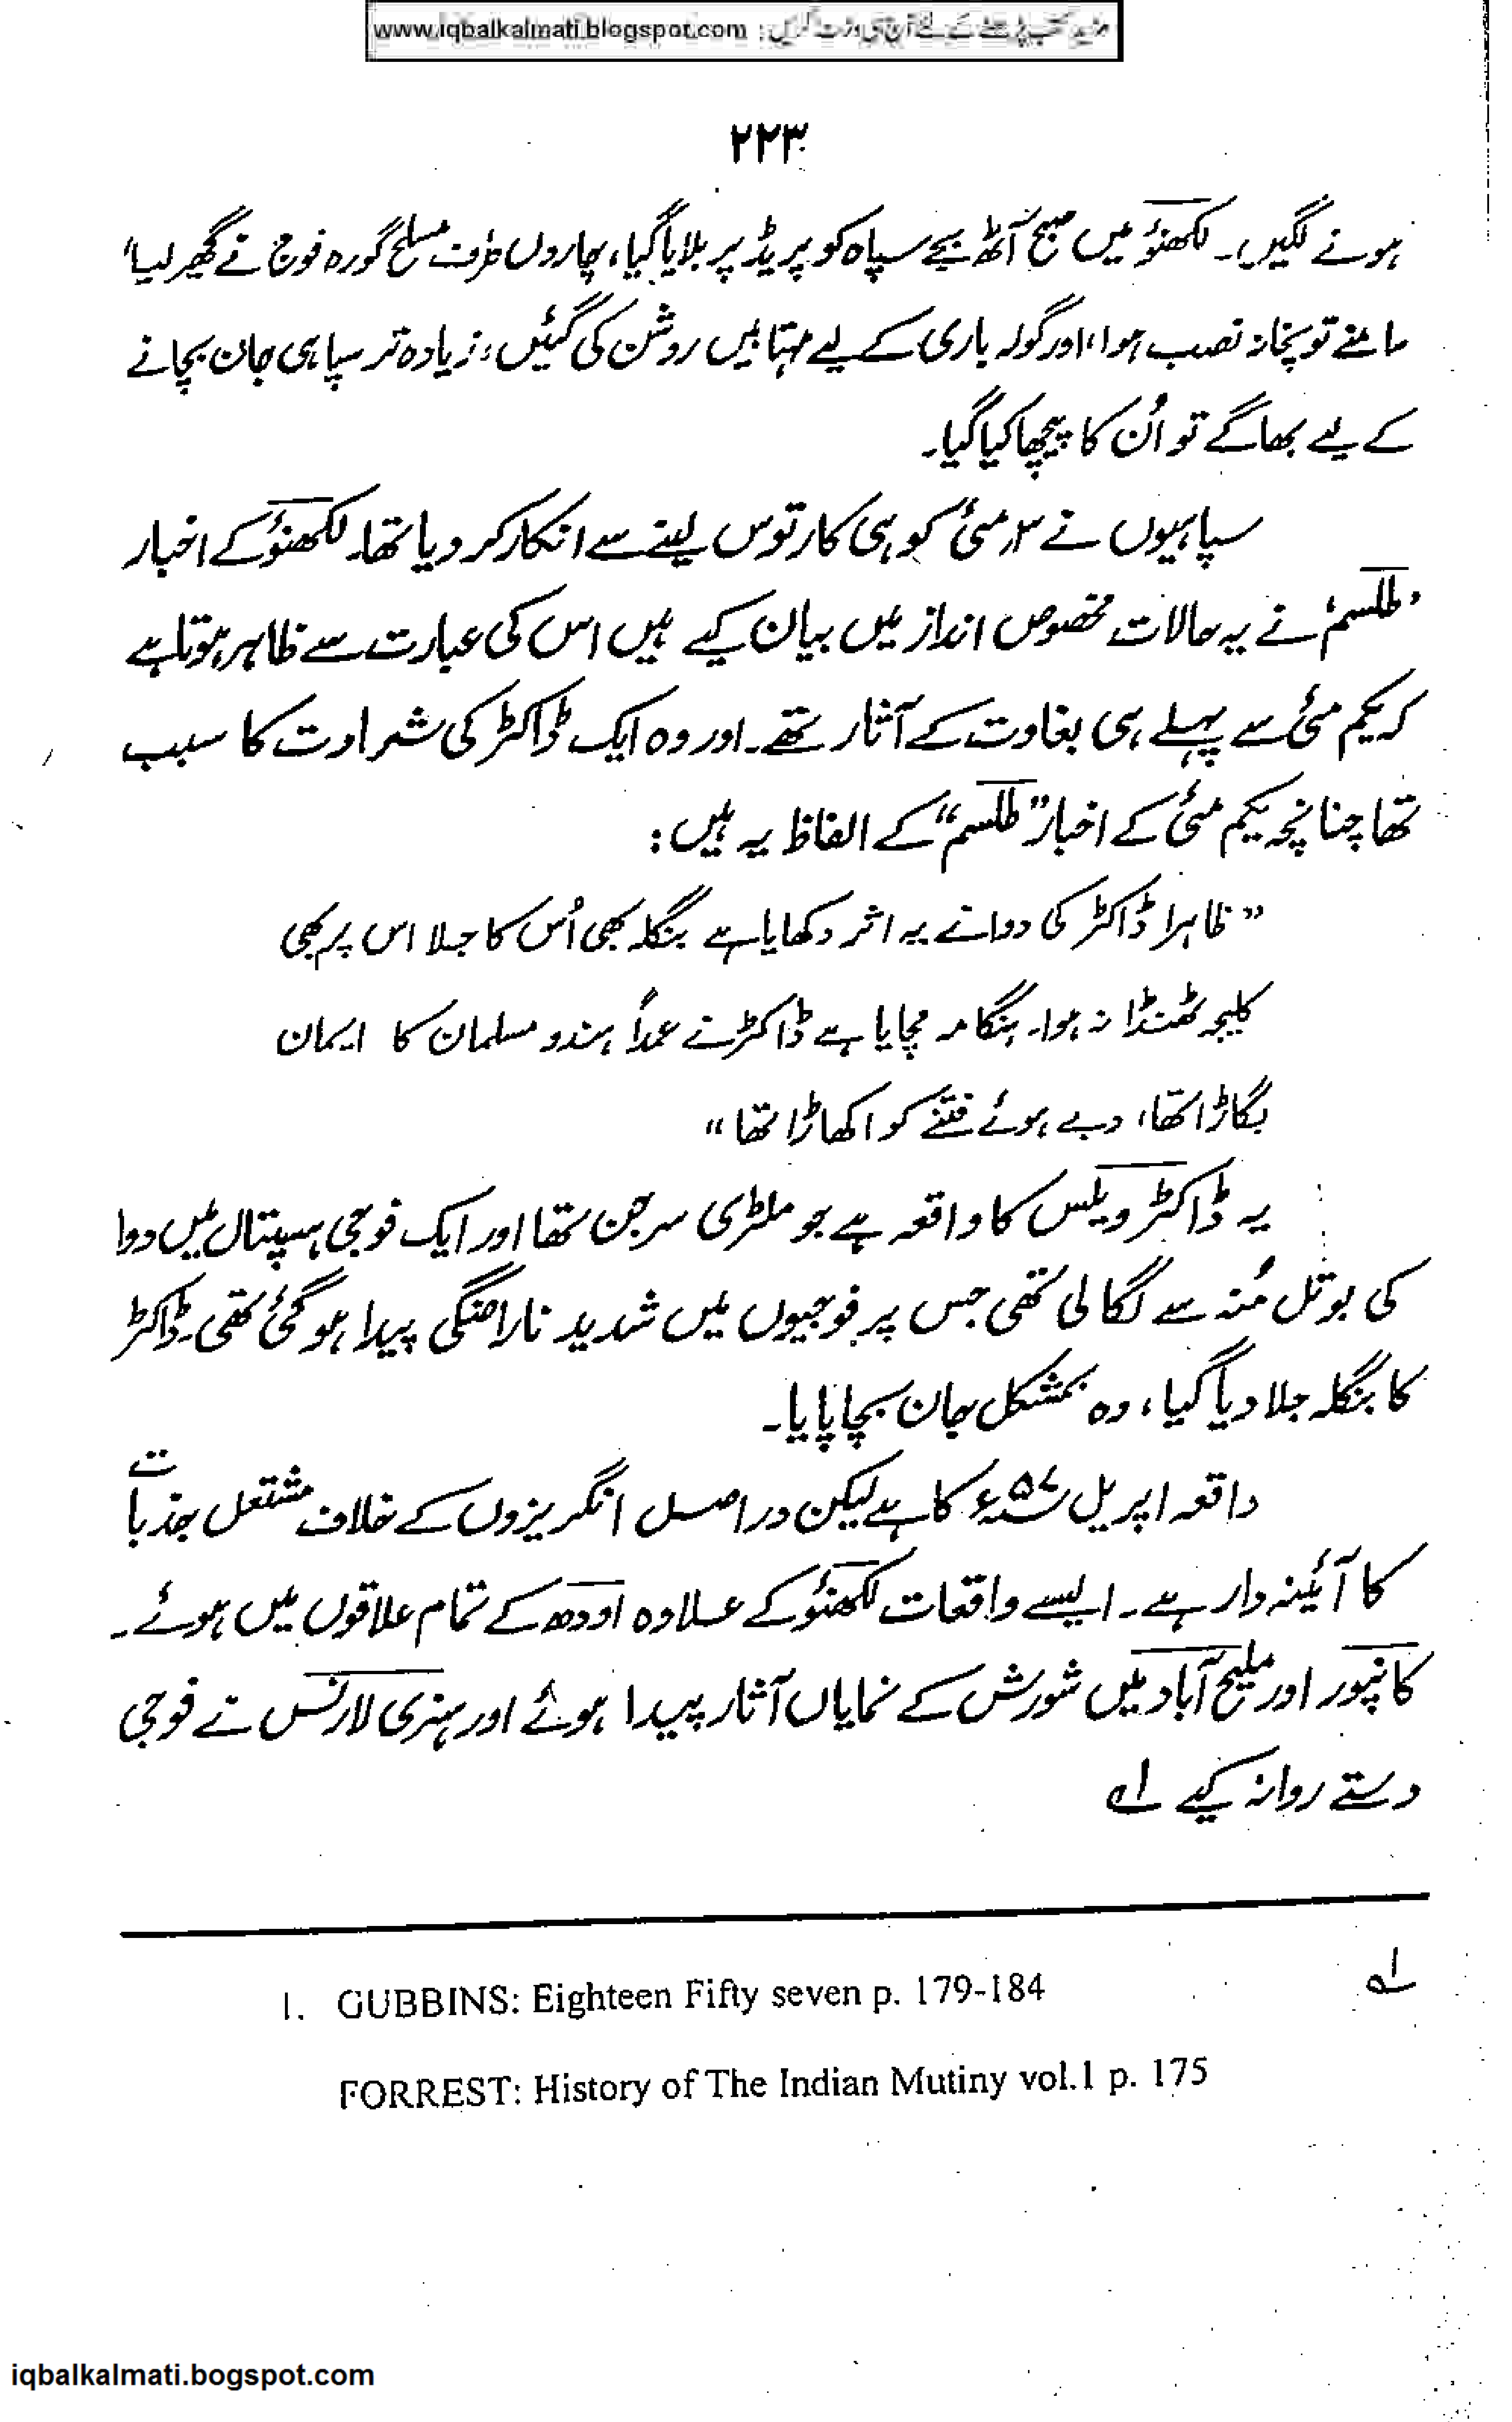 www.iqbalkalmati.blogspot.com : مزید کتب پڑھنے کے لئے آج ہی وزٹ کریں
۲۲۳
ہونے لگیں۔ لکھنؤ میں صبح آٹھ بجے سپاہ کو پریڈ پر بلایا گیا، چاروں طرف مسلح گورہ فوج نے گھیر لیا،
سامنے توپخانہ نصب ہوا، اور گولہ باری کے لیے مہتابیں روشن کی گئیں، زیادہ تر سپاہی جان بچانے
کے لیے بھاگے تو اُن کا پیچھا کیا گیا۔
سپاہیوں نے ۲؍مئی کو ہی کارتوس لینے سے انکار کر دیا تھا۔ لکھنؤ کے اخبار
’طلسم‘ نے یہ حالات مخصوص انداز میں بیان کیے ہیں اس کی عبارت سے ظاہر ہوتا ہے
کہ یکم مئی سے پہلے ہی بغاوت کے آثار تھے۔ اور وہ ایک ڈاکٹر کی شرارت کا سبب
تھا چنانچہ یکم مئی کے اخبار ”طلسم“ کے الفاظ یہ ہیں:
”ظاہرا ڈاکٹر کی دوا نے یہ اثر دکھایا ہے بنگلہ بھی اُس کا جلا اس پر بھی
کلیجہ ٹھنڈا نہ ہوا۔ ہنگامہ مچایا ہے ڈاکٹر نے عمداً ہندو مسلمان کا ایمان
بگاڑا تھا، دبے ہوئے فتنے کو اکھاڑا تھا“
یہ ڈاکٹر ویلس کا واقعہ ہے جو ملٹری سرجن تھا اور ایک فوجی ہسپتال میں دوا
کی بوتل مُنہ سے لگا لی تھی جس پر فوجیوں میں شدید ناراضگی پیدا ہو گئی تھی۔ ڈاکٹر
کا بنگلہ جلا دیا گیا، وہ بمشکل جان بچا پایا۔
واقعہ اپریل ۵۷ء کا ہے لیکن دراصل انگریزوں کے خلاف مشتعل جذبات
کا آئینہ دار ہے۔ ایسے واقعات لکھنؤ کے علاوہ اودھ کے تمام علاقوں میں ہوئے۔
کانپور اور ملیح آباد میں شورش کے نمایاں آثار پیدا ہوئے اور ہنری لارنس نے فوجی
دستے روانہ کیے ۱؎
۱؎
1. GUBBINS: Eighteen Fifty seven p. 179-184
FORREST: History of The Indian Mutiny vol.1 p. 175
iqbalkalmati.bogspot.com